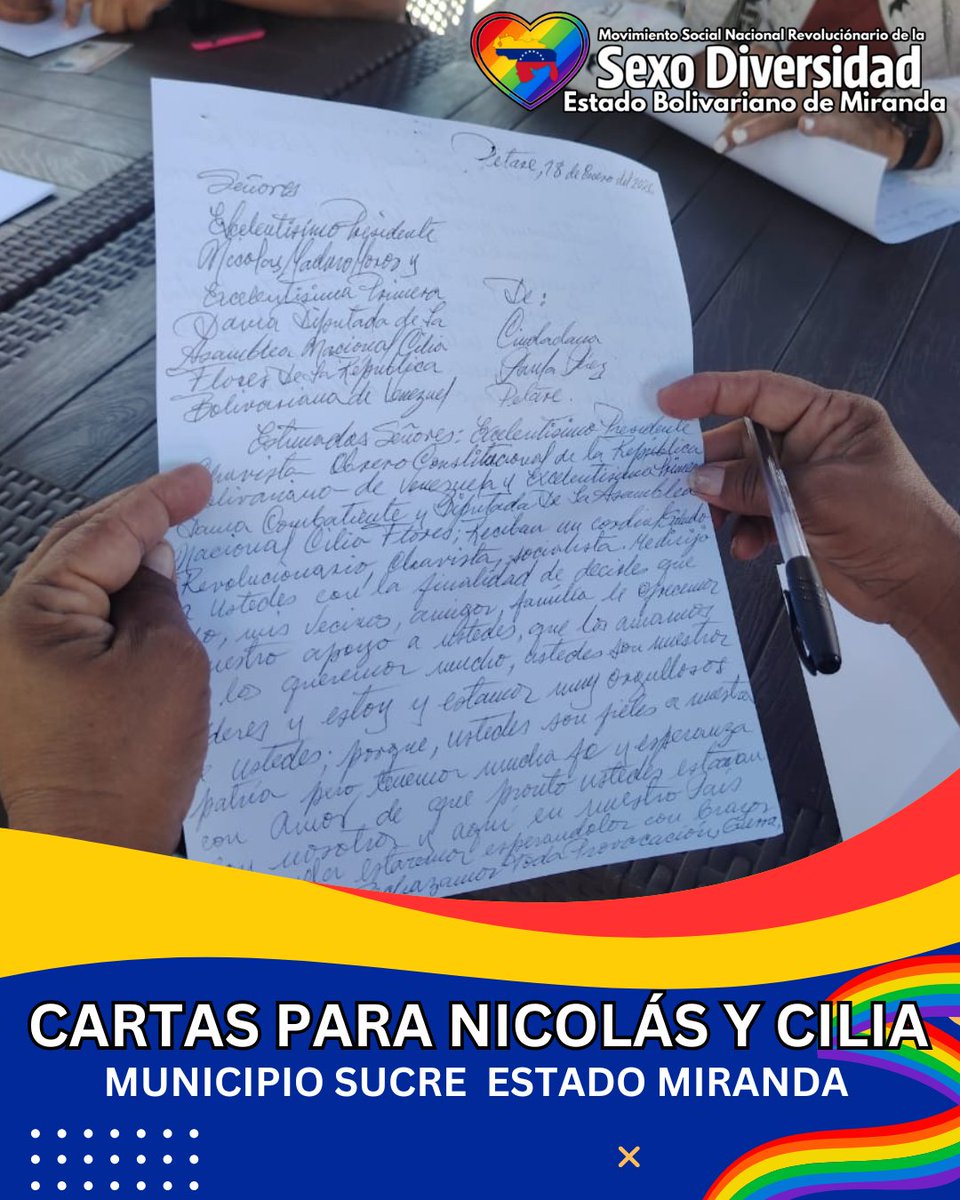 Movimiento Social Nacional Revoluciónario de la
Sexo Diversidad
Estado Bolivariano de Miranda
Petare, 18 de Enero del 2026
Señores
Excelentisimo Presidente
Nicolas Maduro Moros y
Excelentisima Primera
Dama Diputada de la
Asamblea Nacional Cilia
Flores De la República
Bolivariana de Venezuel
De:
Ciudadana
Petare.
Estimados Señores: Excelentisimo Presidente
Chavista Obrero Constitucional de la República
Bolivariano de Venezuela y Excelentisima Primera
Dama Combatiente y Diputada De la Asamblea
Nacional Cilia Flores; Reciban un cordial Saludo
Revolucionario, Chavista, socialista. Me dirijo
a Ustedes con la finalidad de decirles que
yo, mis vecinos, amigos, familia le ofrecemos
nuestro apoyo a ustedes, que los amamos
los queremos mucho, ustedes son nuestros
deres y estoy y estamos muy orgullosos
ustedes; porque, ustedes son fieles a nuestra
patria pero, tenemos mucha fe y esperanza
con Amor, de que pronto ustedes estarán
nosotros y aqui en nuestro País
estaremos esperandolos con brazos
Toda Provocación, Guerra,
CARTAS PARA NICOLÁS Y CILIA
MUNICIPIO SUCRE ESTADO MIRANDA